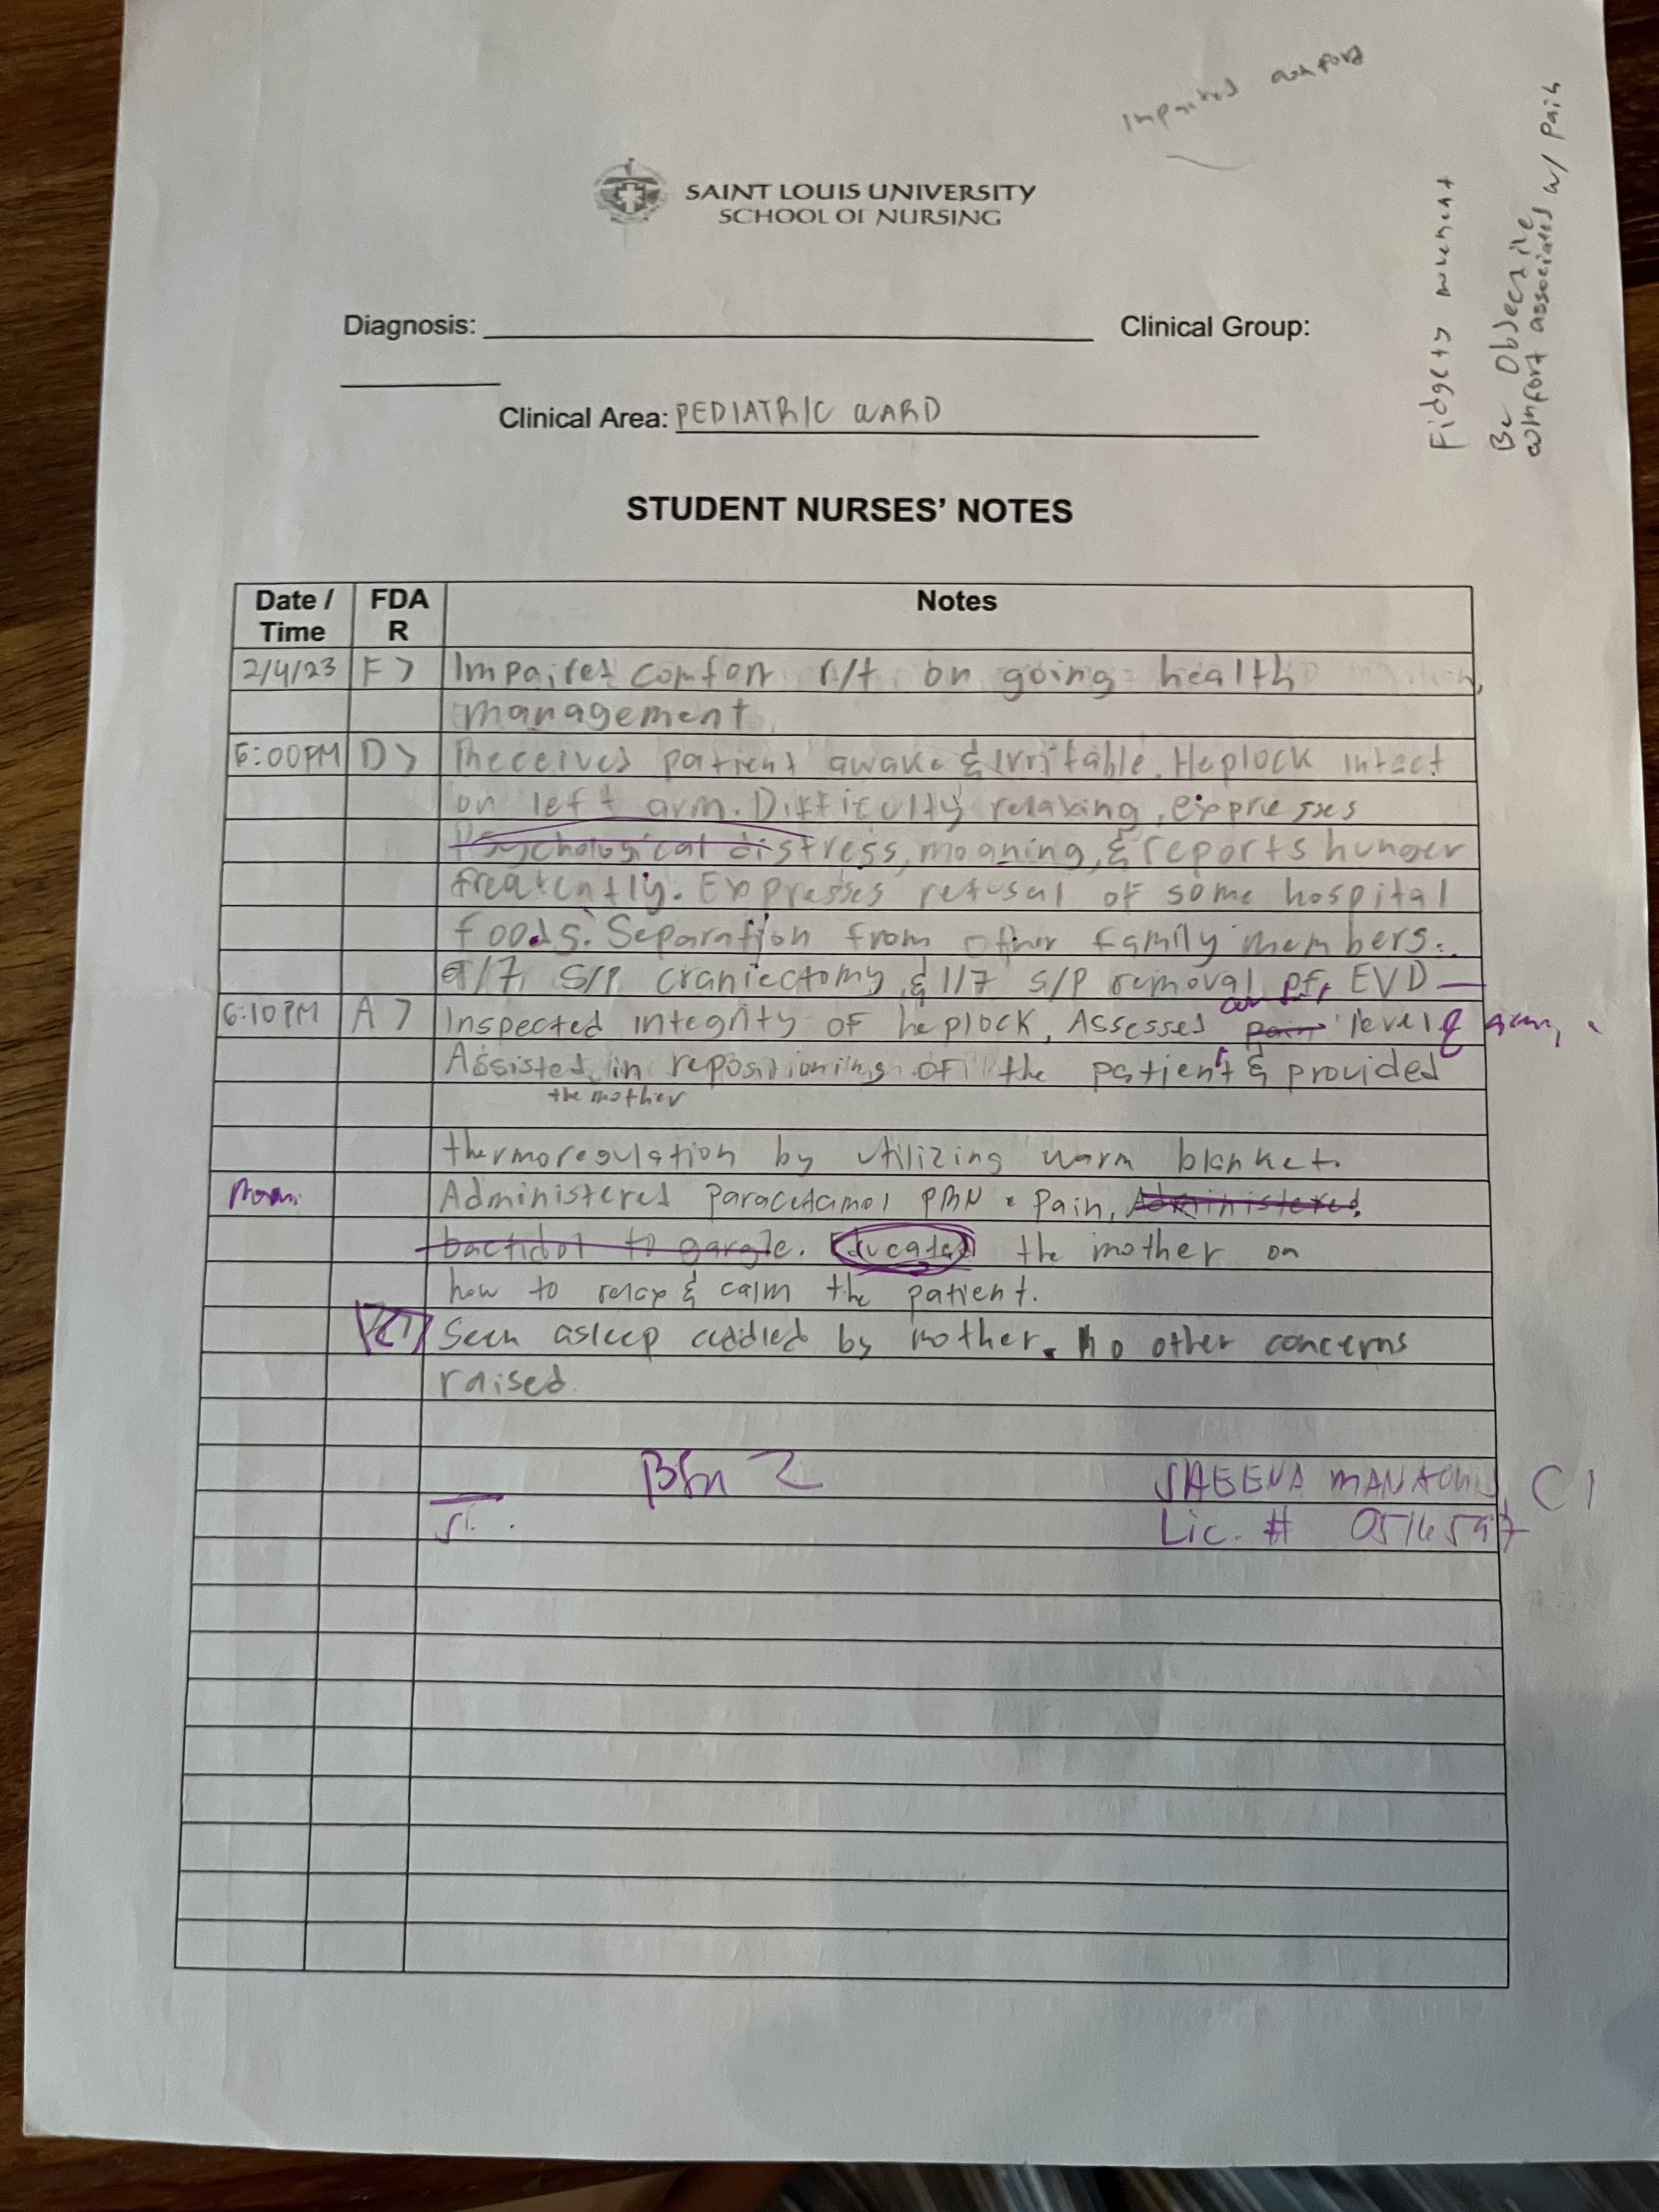 Impaired comfort
Fidgety movement
Be Objective
comfort associated w/ pain
SAINT LOUIS UNIVERSITY
SCHOOL OF NURSING
Diagnosis: Clinical Group:
Clinical Area: PEDIATRIC WARD
STUDENT NURSES' NOTES
Date / Time FDAR Notes
2/4/23 F> Impaired comfort r/t on going health
management
6:00PM D> Received patient awake & irritable. Heplock intact
on left arm. Difficulty relaxing, expresses
Psychological distress, moaning, & reports hunger
frequently. Expresses refusal of some hospital
foods. Separation from other family members.
/7 S/P craniectomy & 1/7 S/P removal of EVD
6:10PM A> Inspected integrity of heplock, Assessed pain level
Assisted in repositioning of the patient & provided
the mother
thermoregulation by utilizing warm blanket.
Administered paracetamol PRN pain, Administered
bactidol to gargle. Educated the mother on
how to relax & calm the patient.
Seen asleep cuddled by mother. No other concerns
raised.
BSN 2
CI
Lic. # 0516597